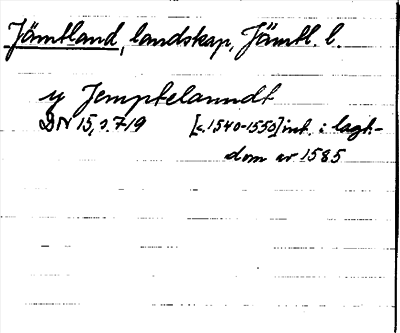 Jämtland, landskap, Jämtl. l.
y Jemptelanndt
DN 15, s. 719 [c. 1540-1550] int. i lagh-
dom av 1585